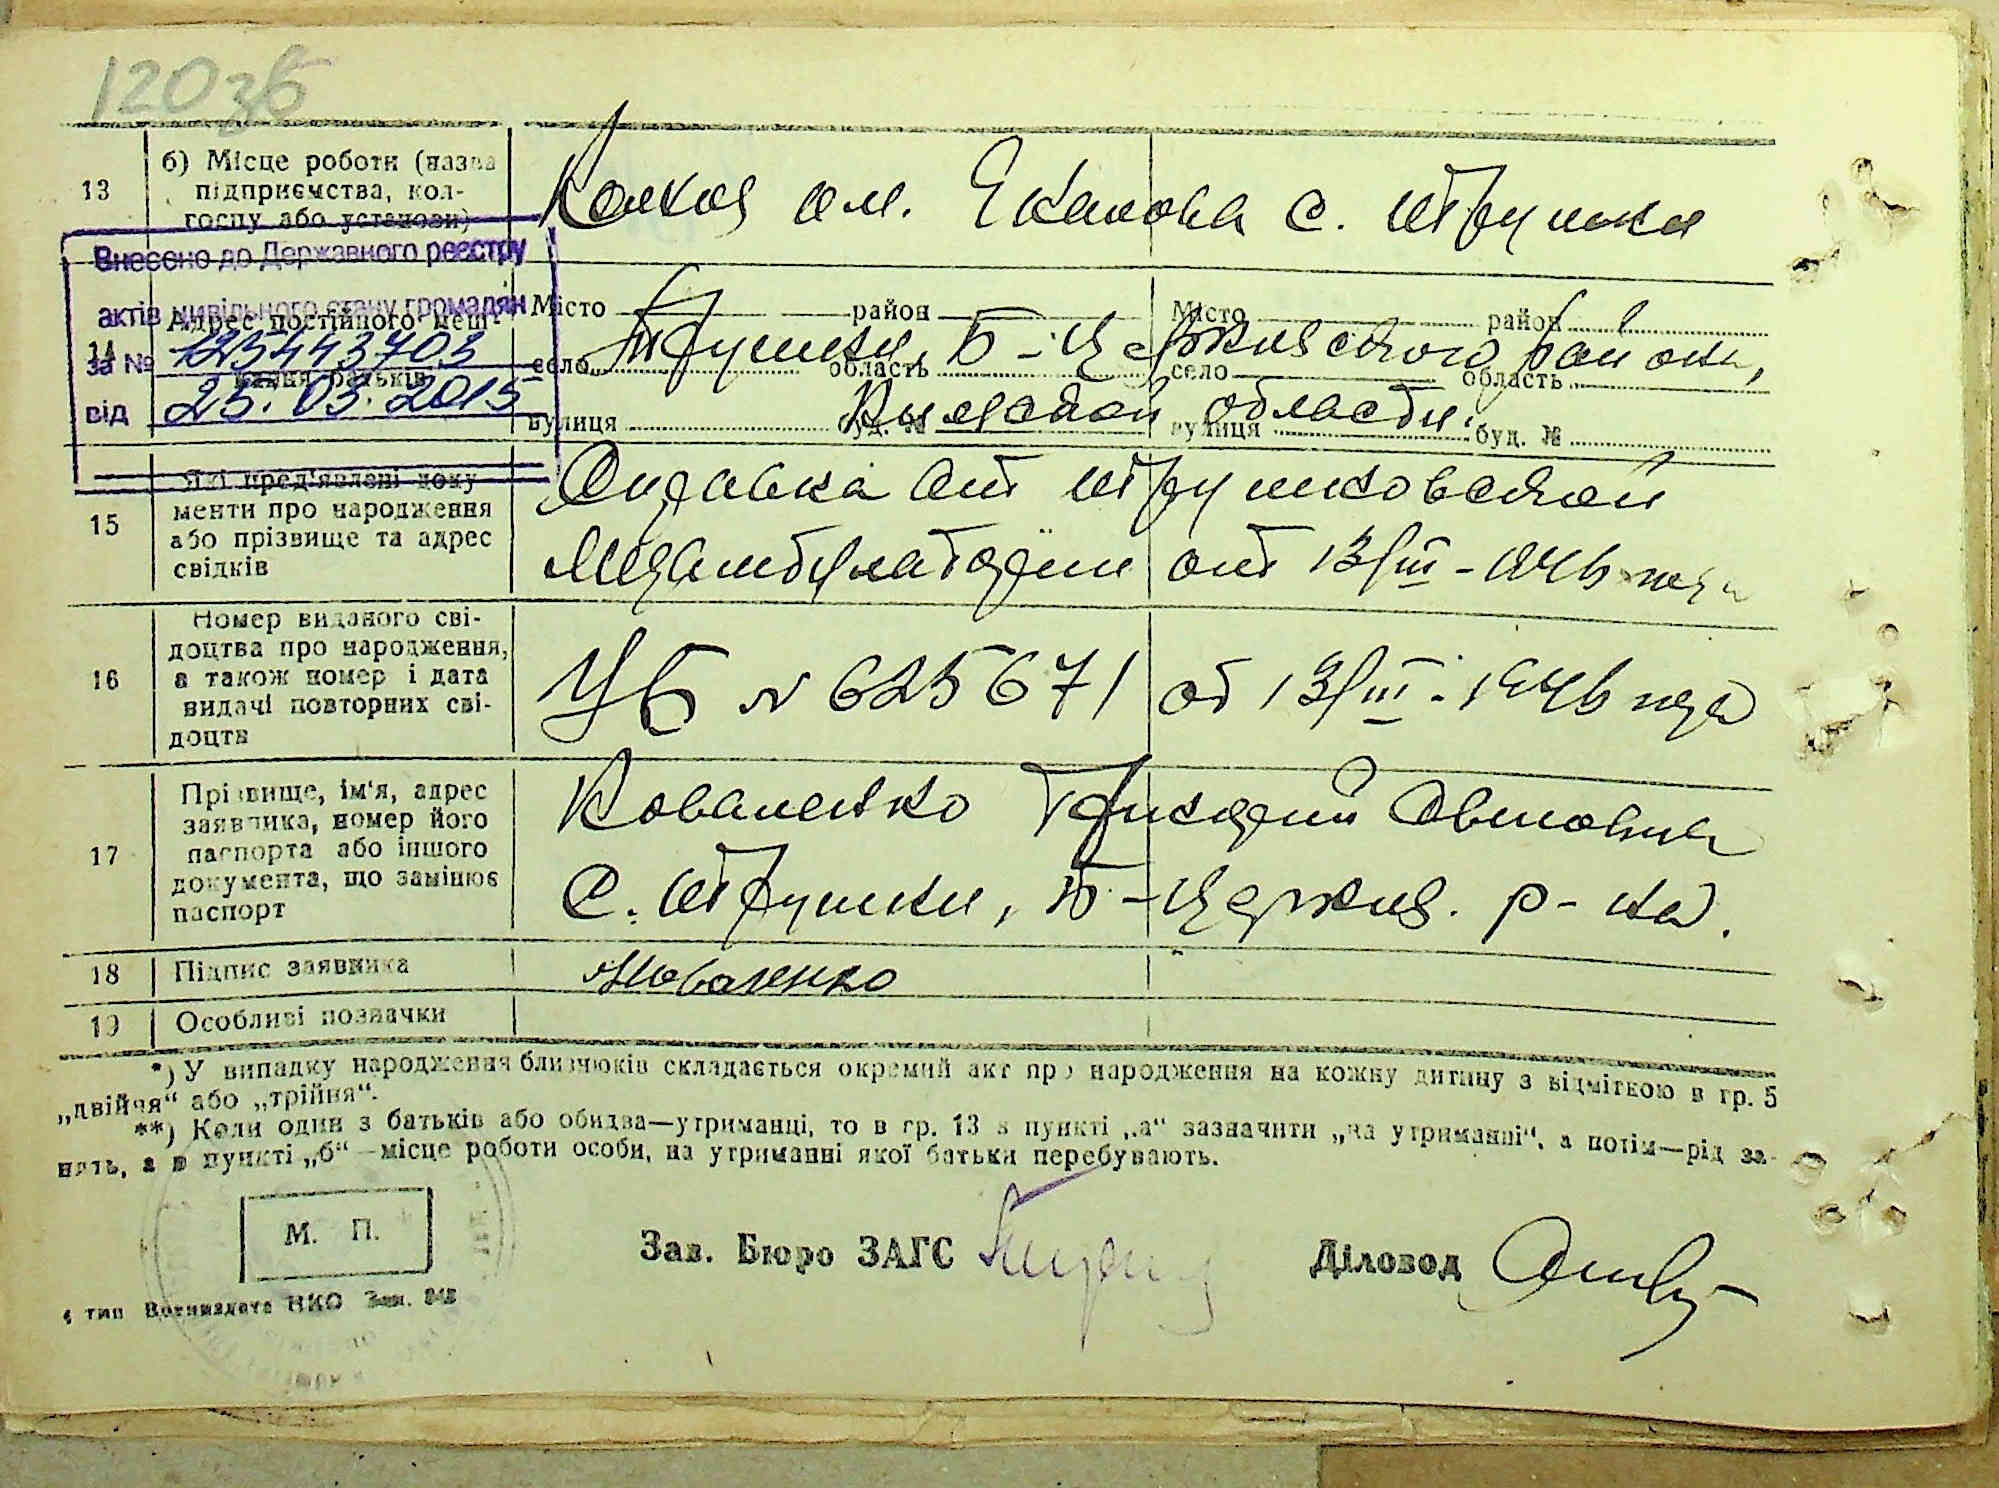 120 зв
13
б) Місце роботи (назва підприємства, кол-
госпу або установи)
Колхоз им. Чкалова с. Трушки
Внесено до Державного реєстру
актів цивільного стану громадян
за № 125443703
від 25.03.2015
14
Адрес постійного меш-
кання батьків
Місто район Місто район
село Трушки, Б-Церковского района,
село область село область
Киевской области.
вулиця буд. № вулиця буд. №
15
Які пред'явлені доку
менти про народження
або прізвище та адрес
свідків
Справка от Трушковской
Медамбулатории от 13/III-1946 года
16
Номер виданого сві-
доцтва про народження,
а також номер і дата
видачі повторних сві-
доцтв
УБ № 625671 от 13/III-1946 года
17
Прізвище, ім'я, адрес
заявника, номер його
паспорта або іншого
документа, що замінює
паспорт
Коваленко
с. Трушки, Б-Церков. р-на.
18
Підпис заявника
Коваленко
19
Особливі позначки
*) У випадку народження близнюків складається окремий акт про народження на кожну дитину з відміткою в гр. 5
„двійня“ або „трійня“.
**) Коли один з батьків або обидва—утриманці, то в гр. 13 в пункті „а“ зазначити „на утриманні“, а потім—рід за-
нять, а в пункті „б“ —місце роботи особи, на утриманні якої батьки перебувають.
М. П.
Зав. Бюро ЗАГС
Діловод
4 тип Воениздата НКО Зак. 848